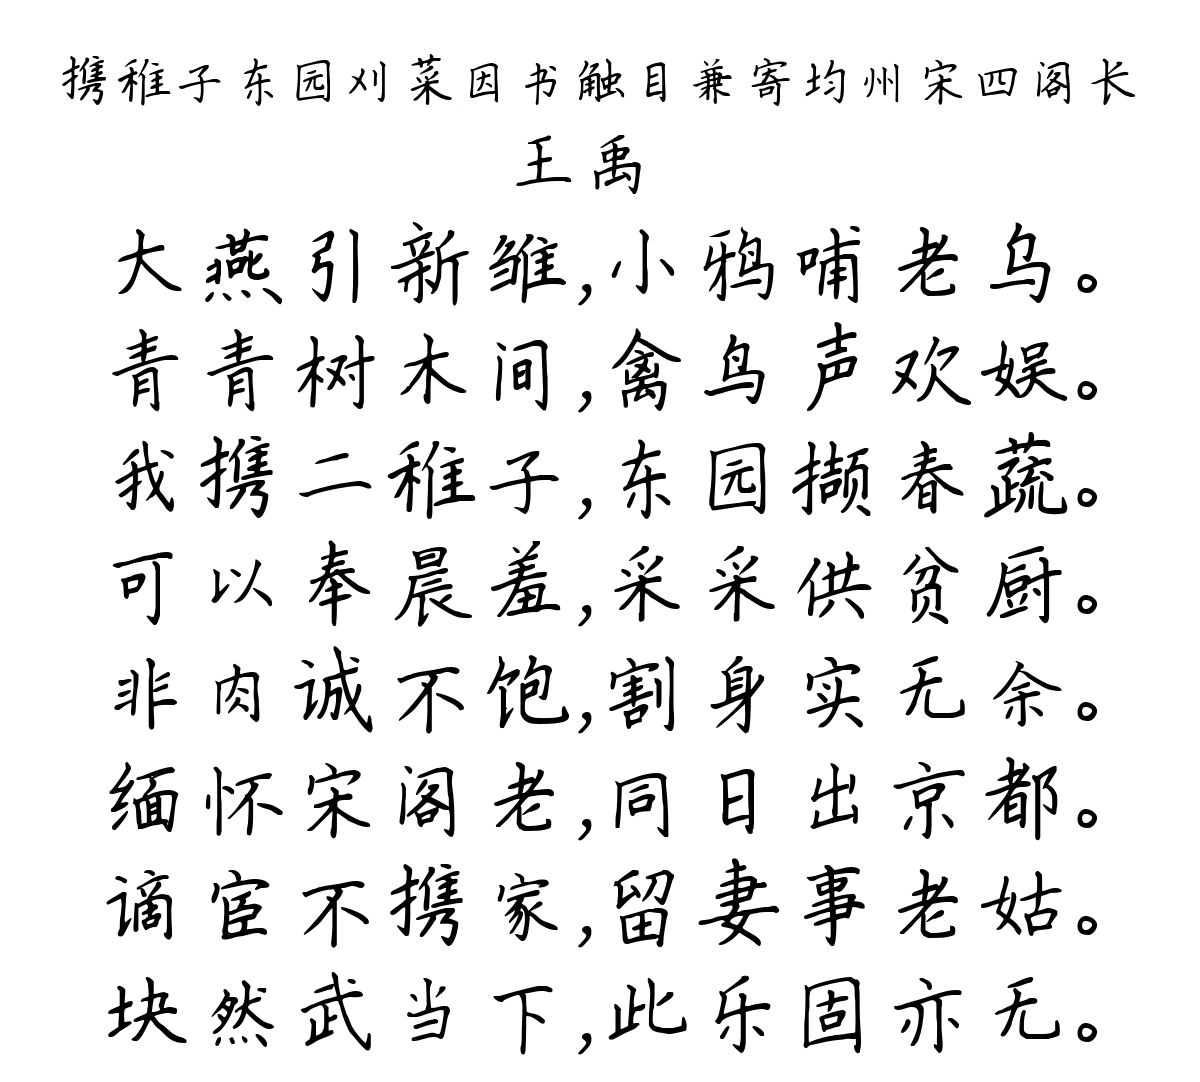 携稚子东园刈菜因书触目兼寄均州宋四阁长
王禹
大燕引新雏,小鸦哺老乌。
青青树木间,禽鸟声欢娱。
我携二稚子,东园撷春蔬。
可以奉晨羞,采采供贫厨。
非肉诚不饱,割身实无余。
缅怀宋阁老,同日出京都。
谪宦不携家,留妻事老姑。
块然武当下,此乐固亦无。